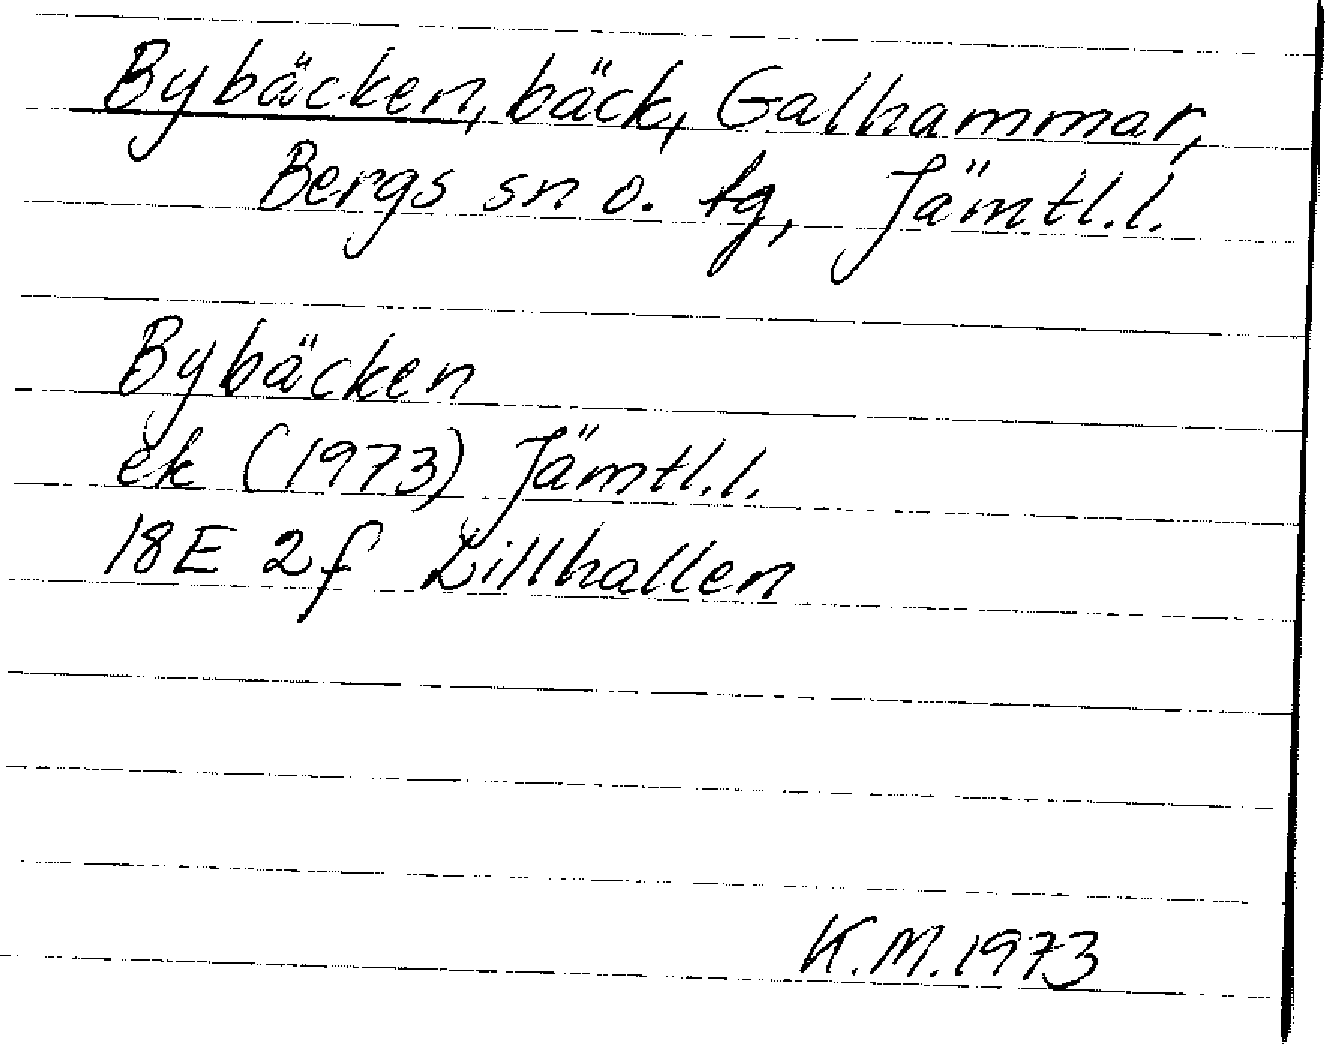 Bybäcken, bäck, Galhammar,
Bergs sn o. tg, Jämtl.l.
Bybäcken
ek (1973) Jämtl.l.
18E 2f Lillhallen
K.M. 1973